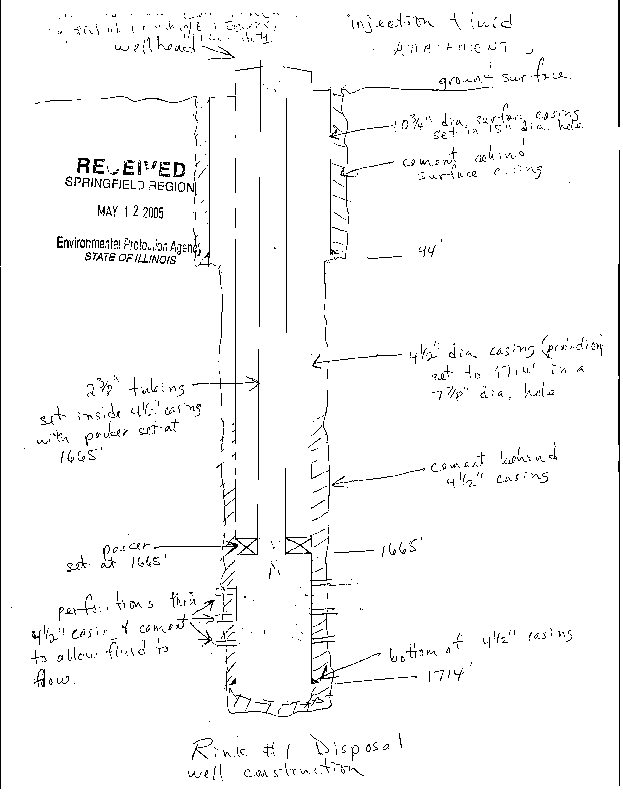 injection fluid
wellhead
ground surface
10 3/4" dia. surface casing
set in 15" dia. hole
cement behind
surface casing
RECEIVED
SPRINGFIELD REGION
MAY 12 2005
Environmental Protection Agency
STATE OF ILLINOIS
44'
4 1/2" dia casing (production)
set to 1714' in a
7 7/8" dia. hole
2 3/8" tubing
set inside 4 1/2" casing
with packer set at
1665'
cement behind
4 1/2" casing
packer
set at 1665'
1665'
perforations thru
4 1/2" casing & cement
to allow fluid to
flow.
bottom of 4 1/2" casing
1714'
Rink #1 Disposal
well construction